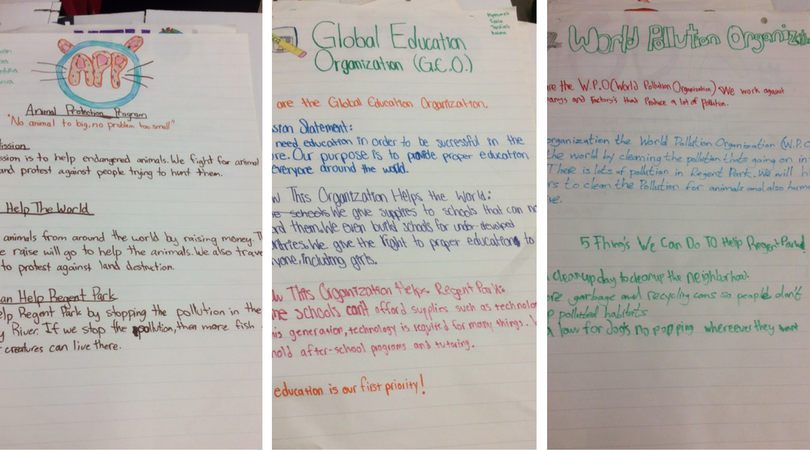 APP
Animal Protection Program
"No animal to big, no problem too small"
ission
ssion is to help endangered animals. We fight for animal
and protest against people trying to hunt them.
Help The World
animals from around the world by raising money. T
e raise will go to help the animals. We also trave
to protest against land destruction.
an Help Regent Park
elp Regent Park by stopping the pollution in the
y River. If we stop the pollution, then more fish
creatures can live there.
Global Education
Organization (G.E.O.)
are the Global Education Organization.
sion Statement:
need education in order to be successful in the
re. Our purpose is to provide proper education
everyone around the world.
w This Organization Helps the World:
e schools We give supplies to schools that can no
ord them. We even build schools for under-developed
ontries. We give the right to proper education to
yone, including girls.
w This Organization Helps Regent Park:
me schools can't afford supplies such as technolog
his generation, technology is required for many things. W
hold after-school programs and tutoring.
education is our first priority!
World Pollution Organiza
are the W.P.O (World Pollution Organization). We work against
and factory's that Produce a lot of pollution.
organization the World Pollution Organization (W.P.O
the world by cleaning the pollution thats going on in
There is lots of pollution in Regent Park. We will h
rs to clean the Pollution for animals and also human
ve.
5 Thing's We Can Do TO Help Regent Park
cleanup day to cleanup the neighborhood
ore garbage and recycling cans so people don't
polluted habitats
a law for dogs no pooping whereever they want